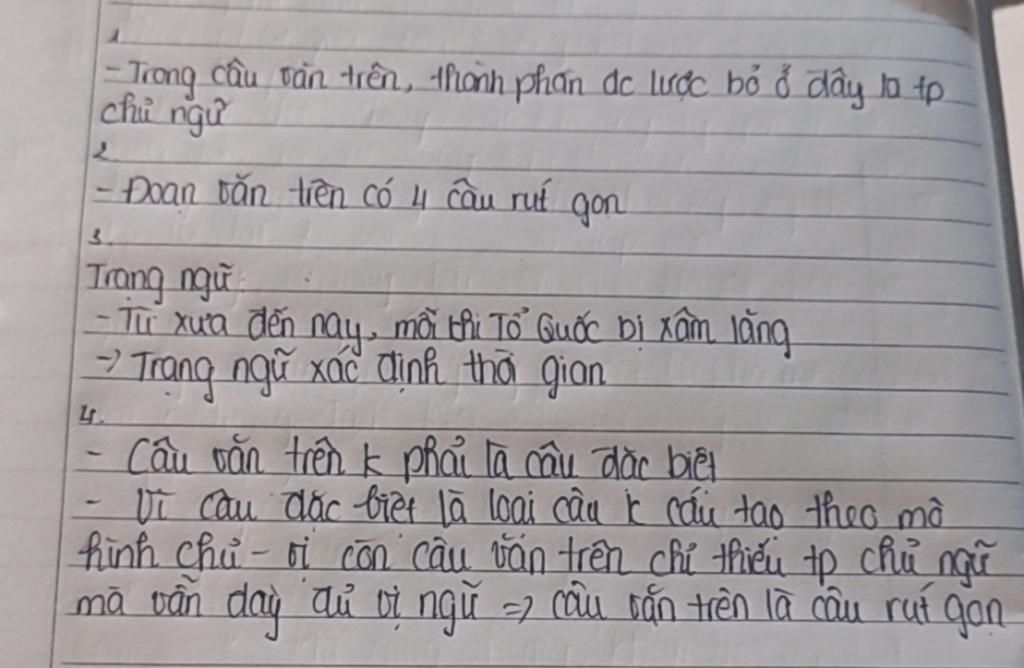 1
- Trong câu văn trên, thành phần dc lược bỏ ở đây là tp
chủ ngữ
2
- Đoạn văn trên có 4 câu rút gọn
3.
Trạng ngữ:
- Từ xưa đến nay, mỗi khi Tổ Quốc bị xâm lăng
→ Trạng ngữ xác định thời gian
4.
- Câu văn trên k phải là câu đặc biệt
- Vì câu đặc biệt là loại câu k cấu tạo theo mô
hình chủ - vị còn câu văn trên chỉ thiếu tp chủ ngữ
mà vẫn đầy đủ vị ngữ => câu văn trên là câu rút gọn